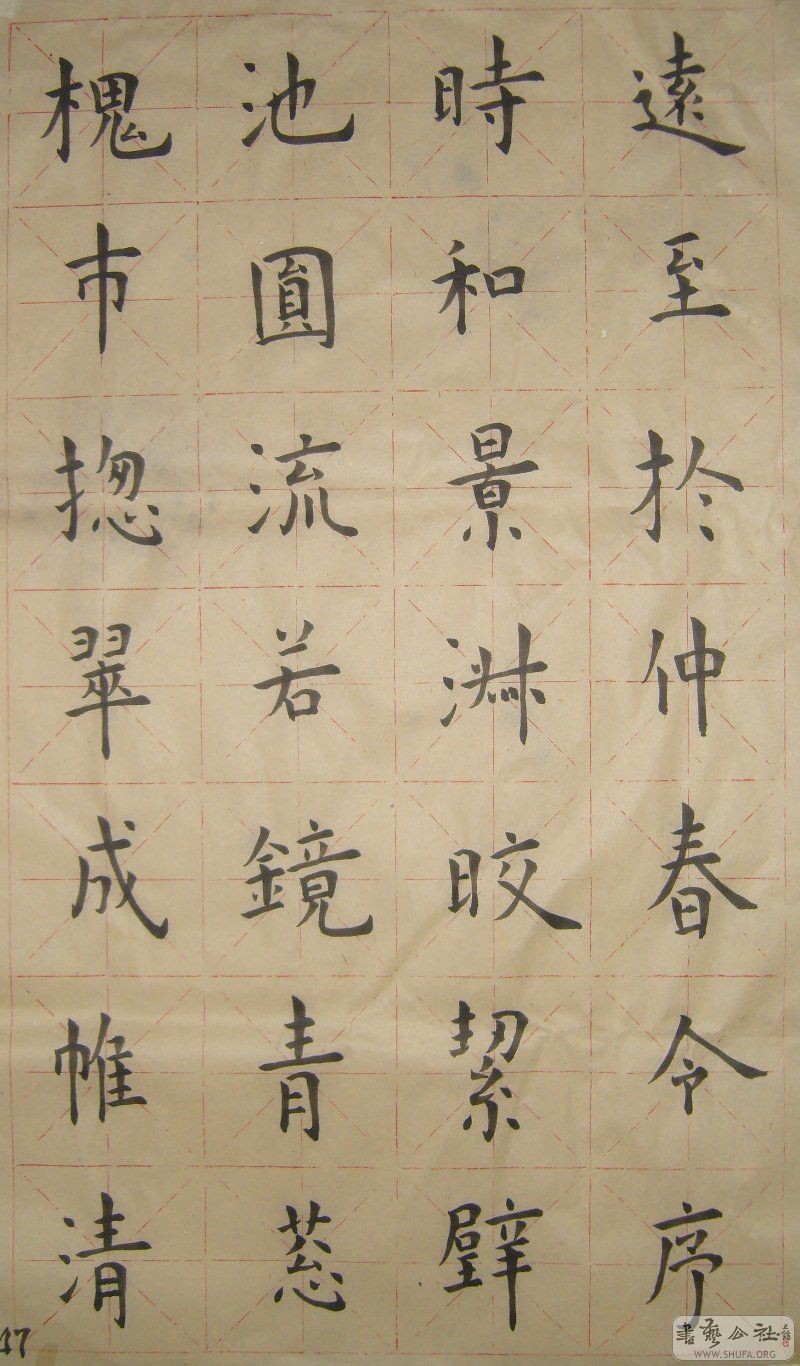 遠至於仲春令序
時和景淑晈絜璧
池圎流若鏡青葱
槐市揔翠成帷清
書藝公社
WWW.SHUFA.ORG